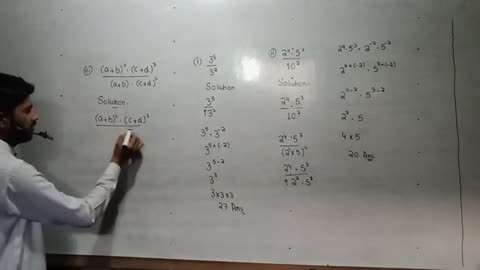 iii) (a+b)² · (c+d)³
(a+b) · (c+d)²
Solution.
(a+b)² · (c+d)³
(i) 3⁵
3²
Solution
3⁵
3²
3⁵ · 3⁻²
3⁵⁺⁽⁻²⁾
3⁵⁻²
3³
3×3×3
27 Ans
ii) 2⁴ · 5³
10²
Solution.
2⁴ · 5³
10²
2⁴ · 5³
(2×5)²
2⁴ · 5³
2² · 5²
2⁴ · 5³ · 2⁻² · 5⁻²
2⁴⁺⁽⁻²⁾ · 5³⁺⁽⁻²⁾
2⁴⁻² · 5³⁻²
2² · 5
4 × 5
20 Ans